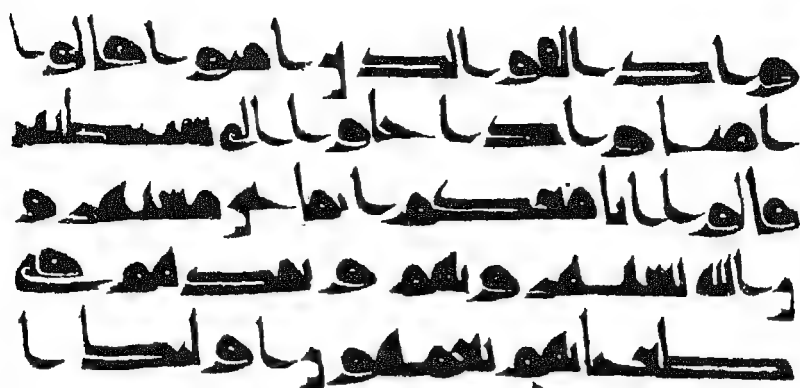 وإذا لقوا الذين آمنوا قالوا
آمنا وإذا خلوا إلى شيطينهم
قالوا إنا معكم إنما نحن مستهزو
ن الله يستهزئ بهم ويمدهم في
طغينهم يعمهون أولئك ا